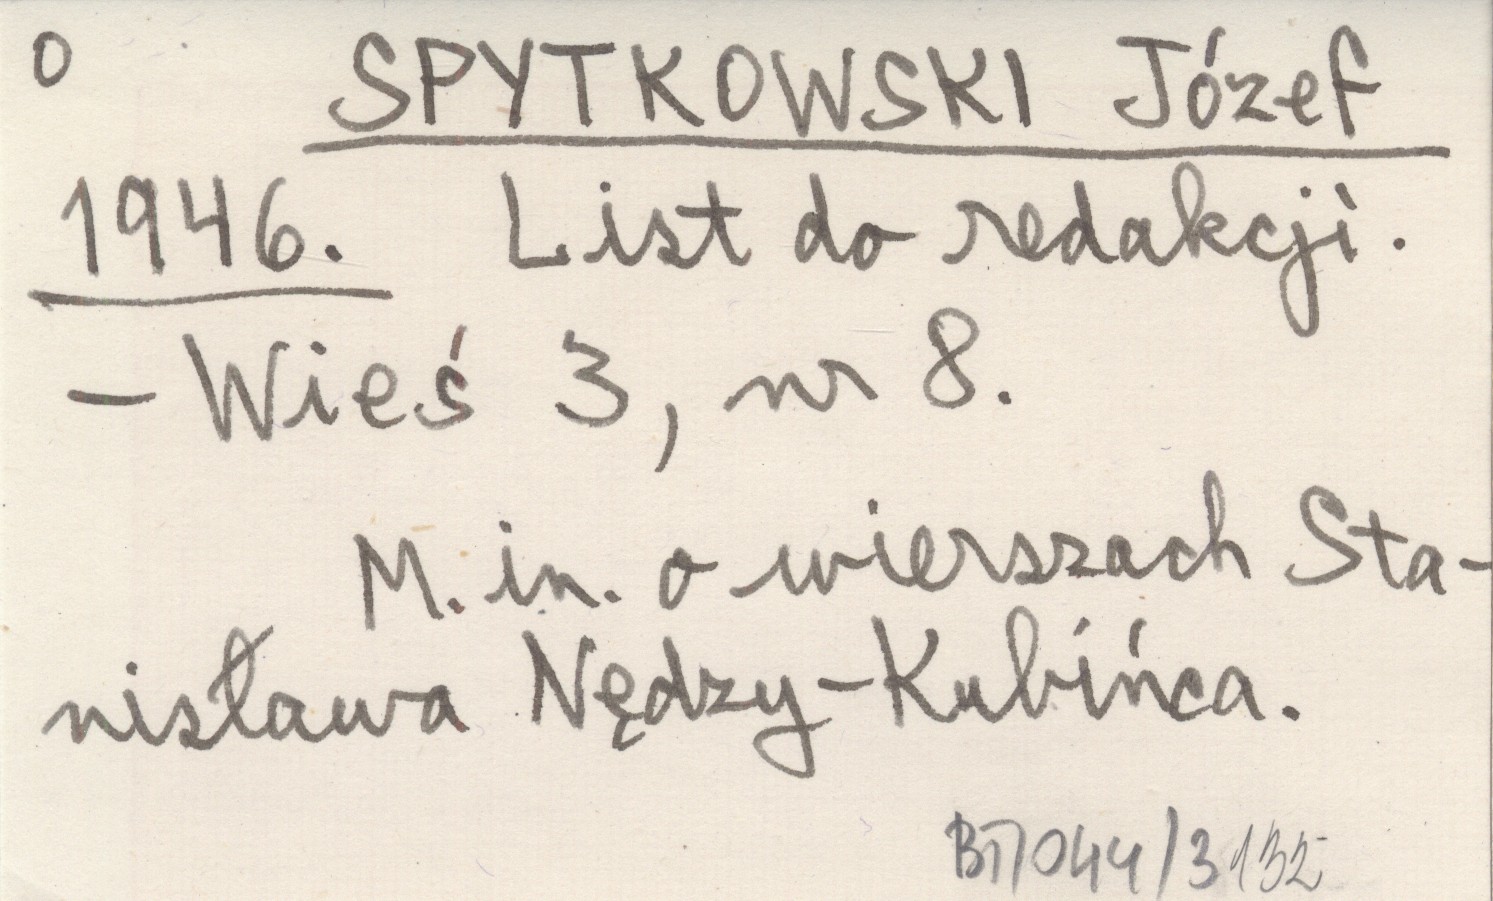 o SPYTKOWSKI Józef
1946. List do redakcji.
- Wieś 3, nr 8.
M. in. o wierszach Sta-
nisława Nędzy-Kubińca.
BT/044/3/132